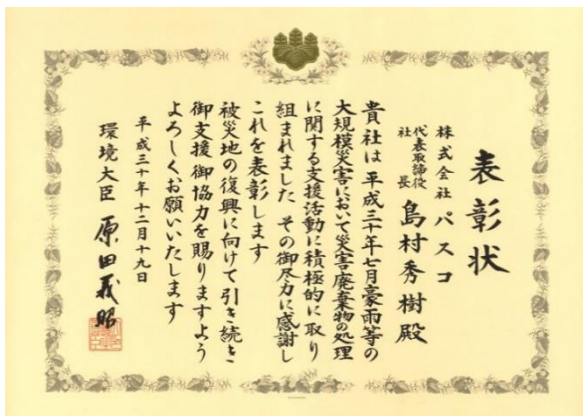 表彰状
株式会社 パスコ
代表取締役
社長 島村秀樹殿
貴社は平成三十年七月豪雨等の
大規模災害において災害廃棄物の処理
に関する支援活動に積極的に取り
組まれました その御尽力に感謝し
これを表彰します
被災地の復興に向けて引き続き
御支援御協力を賜りますよう
よろしくお願いいたします
平成三十年十二月十九日
環境大臣 原田義昭